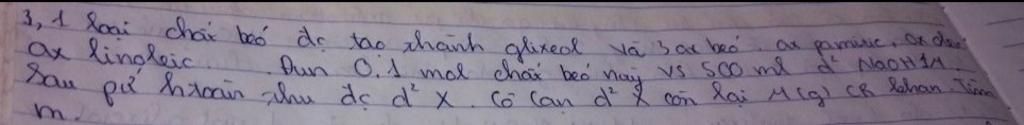 3, 1 loại chất béo đc tạo thành glixeol và 3 ax béo. ax pamitic, ax
ax linoleic. Đun 0.1 mol chất béo này vs 500 ml d² NaOH 1M.
Sau pứ h.toàn thu đc d² X. Cô cạn d² X còn lại M(g) CR khan. Tìm
m.